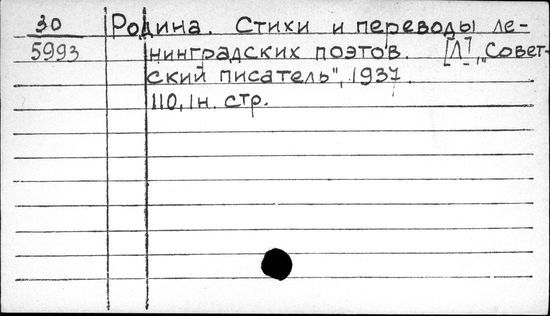 30 Родина. Стихи и переводы ле-
5993 нинградских поэтов. [Л], „Совет-
ский писатель", 1937.
110, 1н. стр.